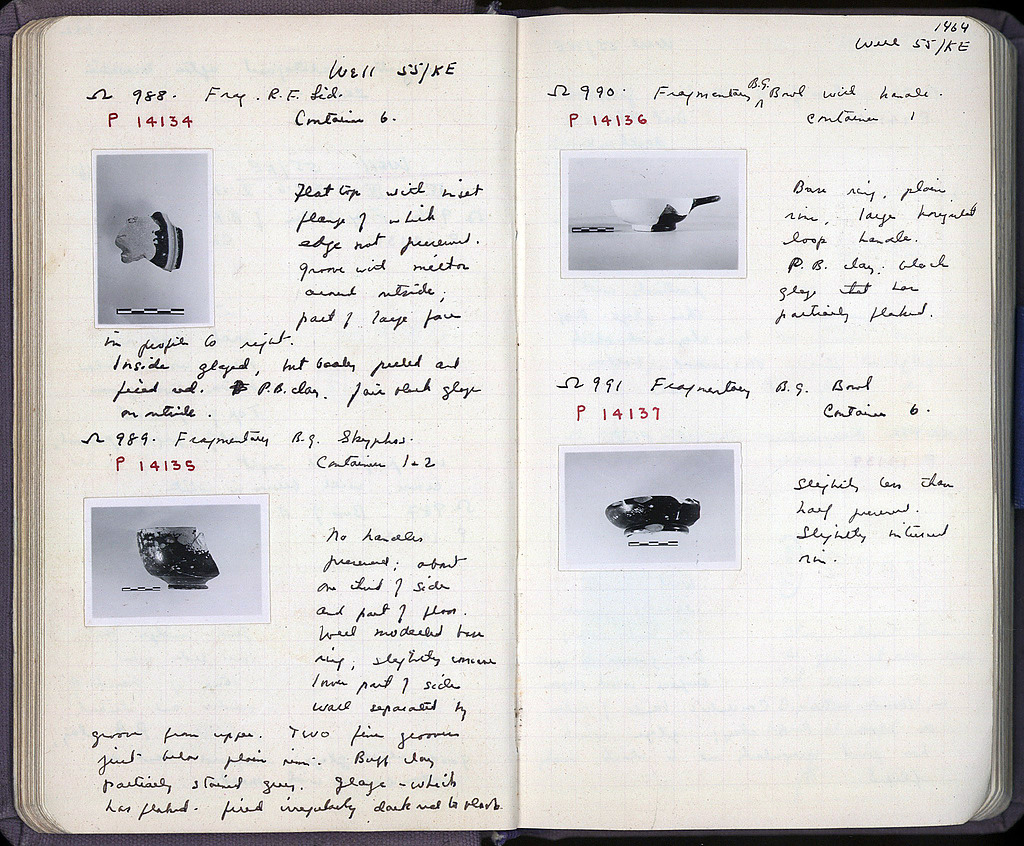 Well 55/KE
Ω 988. Frag. R.F. Lid.
P 14134 Container 6.
Flat top with inset
flange of which
edge not preserved.
groove with
around outside;
part of large face
in profile to right.
Inside glazed, but badly peeled and
fired red. P.B. clay. Fair black glaze
on outside.
Ω 989. Fragmentary B.G. Skyphos.
P 14135 Container 1+2
No handles
preserved; about
one third of side
and part of floor.
Well modelled base
ring; slightly concave
lower part of side
wall separated by
groove from upper. Two fine grooves
just below plain rim. Buff clay
partially stained grey. glaze - which
has flaked. fired irregularly dark red to black.
1464
Well 55/KE
Ω 990. Fragmentary B.G. Bowl with handle.
P 14136 Container 1
Base ring, plain
rim, large horizontal
loop handle.
P.B. clay. black
glaze that has
partially flaked.
Ω 991 Fragmentary B.G. Bowl
P 14137 Container 6.
Slightly less than
half preserved.
Slightly inturned
rim.